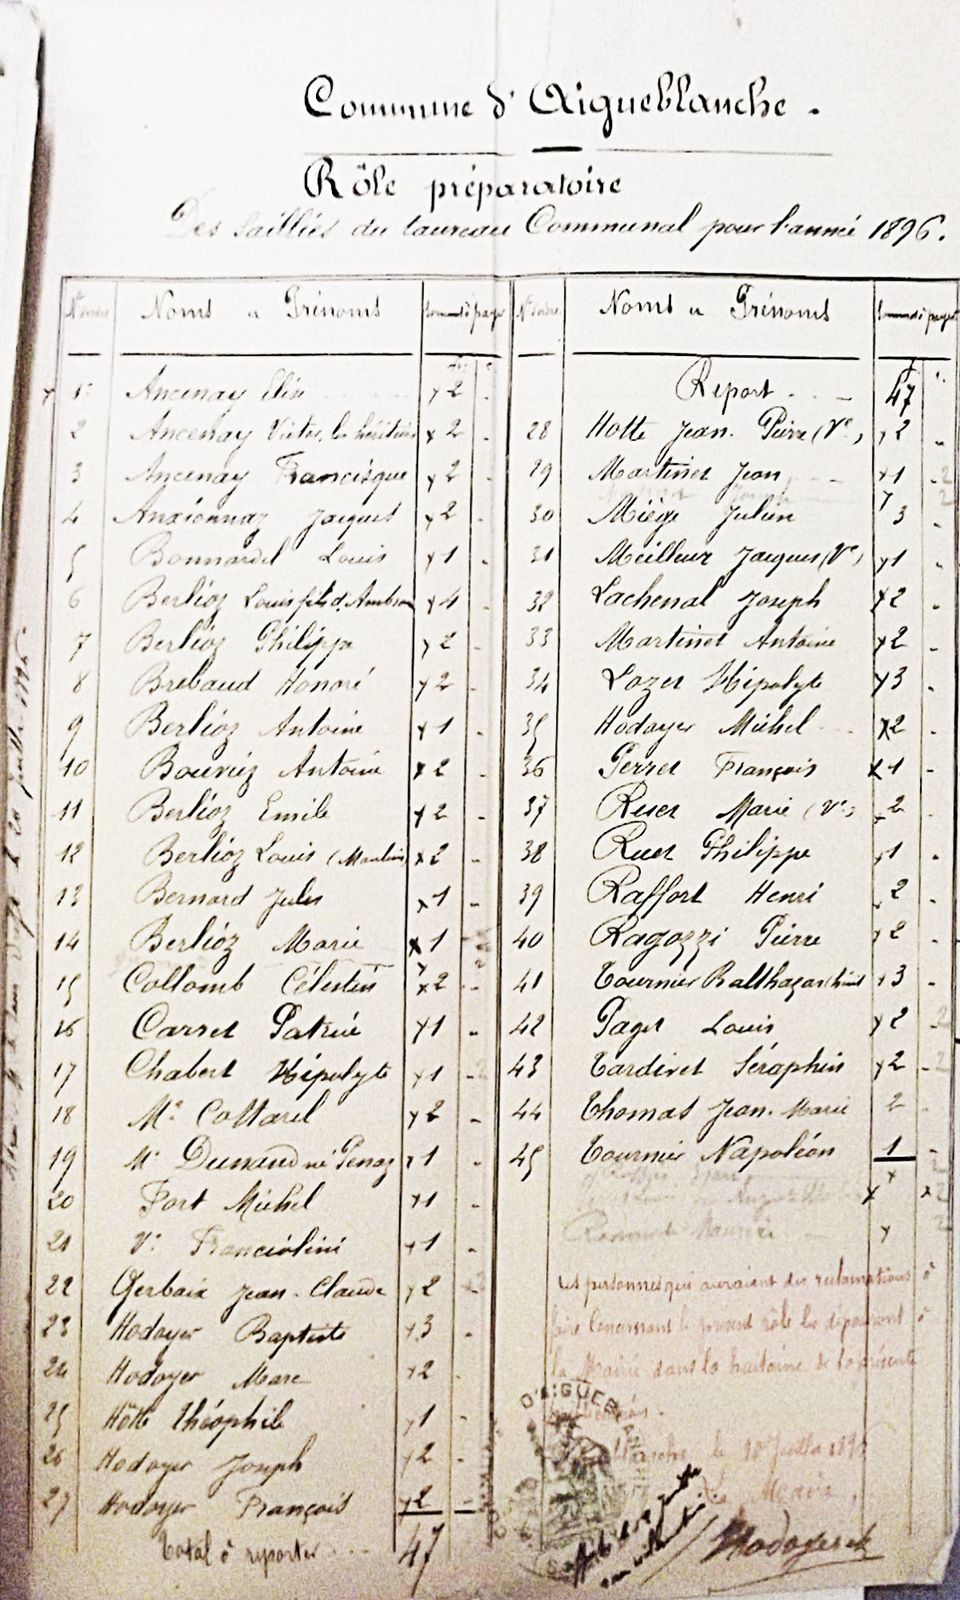 Commune d'Aigueblanche.
Rôle préparatoire
Des saillies du taureau Communal pour l'année 1896.
N° d'ordre Noms et Prénoms Sommes à payer
1 Ancenay Elie 2
2 Ancenay Victor, les héritiers 2
3 Ancenay Francisque 2
4 Anxionnaz Jacques 2
5 Bonnardel Louis 1
6 Berlioz Louis fils d'Ambroise 4
7 Berlioz Philippe 2
8 Brebaud Honoré 2
9 Berlioz Antoine 1
10 Bouviez Antoine 2
11 Berlioz Emile 2
12 Berlioz Louis (Moulins) 2
13 Bernard Jules 1
14 Berlioz Marie 1
15 Collomb Célestin 2
16 Carret Patrice 1
17 Chabert Hipolyte 1
18 Me Collarel 2
19 Me Dunand né Genaz 1
20 Fort Michel 1
21 Ve Franciolini 1
22 Gerbaix Jean-Claude 2
23 Hodoyer Baptiste 3
24 Hodoyer Marc 2
25 Hôtte Théophile 1
26 Hodoyer Joseph 2
27 Hodoyer François 2
Total à reporter 47
N° d'ordre Noms et Prénoms Sommes à payer
Report 47
28 Hotte Jean-Pierre (Ve) 2
29 Martinet Jean 1
30 Miège Julien 3
31 Meilleur Jacques (Ve) 1
32 Lachenal Joseph 2
33 Martinet Antoine 2
34 Lozer Hipolyte 3
35 Hodoyer Michel 2
36 Perret François 1
37 Ruer Marie (Ve) 2
38 Ruer Philippe 1
39 Raffort Henri 2
40 Ragozzi Pierre 2
41 Tournier Balthazar 3
42 Paget Louis 2
43 Tardivet Séraphin 2
44 Thomas Jean-Marie 2
45 Tournier Napoléon 1
Les personnes qui auraient des réclamations à
faire concernant le présent rôle les déposeront à
la Mairie dans la huitaine de la présente
le 10 Juillet 189
Le Maire,
D'AIGUEBLANCHE
Hodoyer